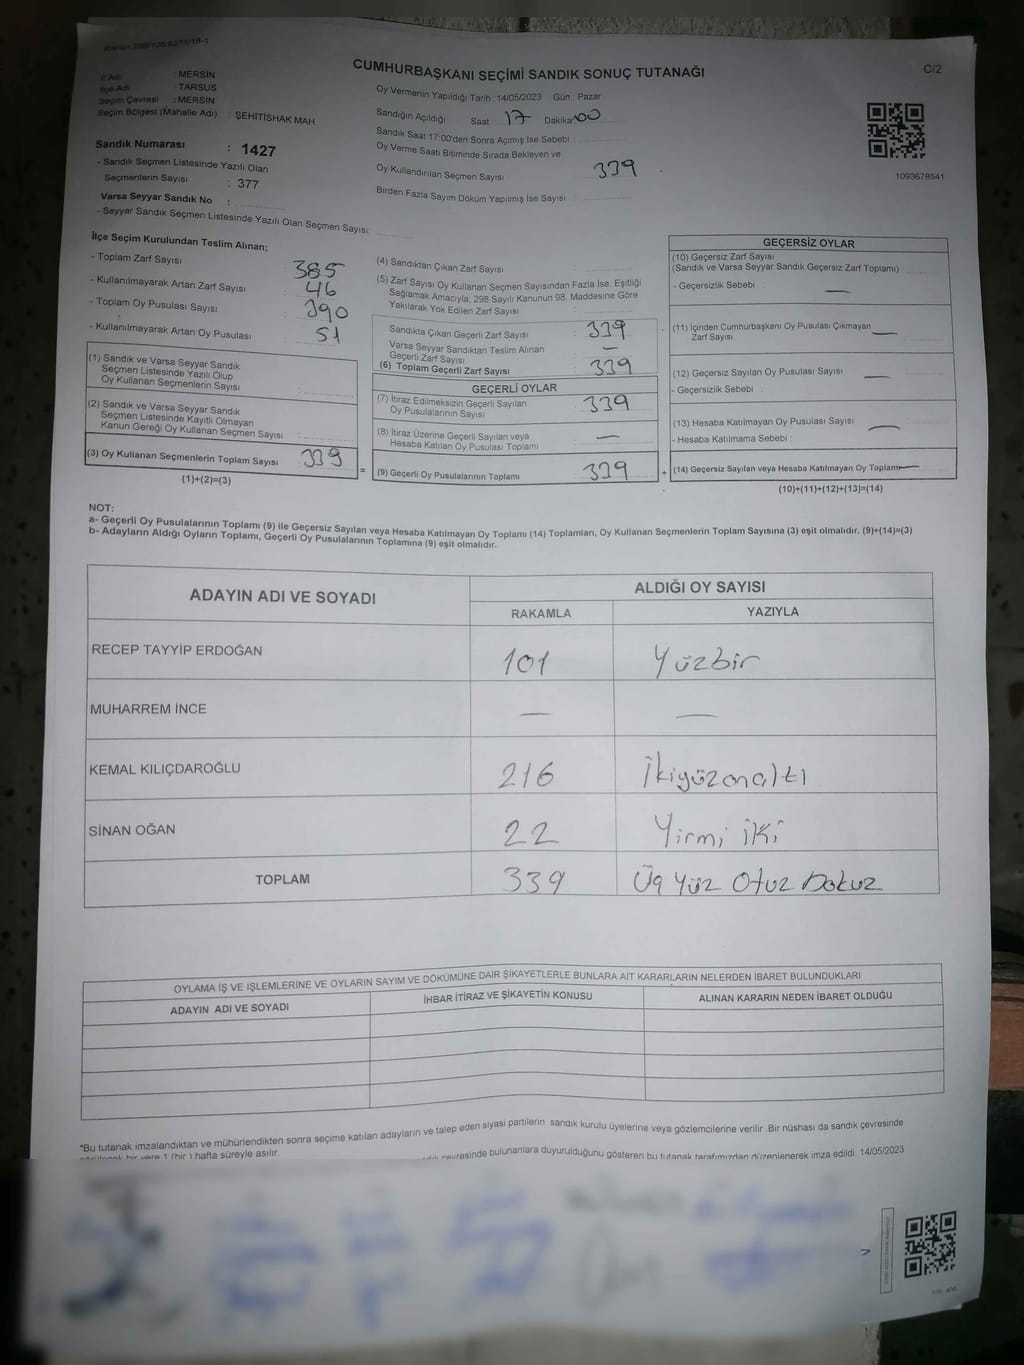 CUMHURBAŞKANI SEÇİMİ SANDIK SONUÇ TUTANAĞI
C/2
İl Adı : MERSİN
İlçe Adı : TARSUS
Seçim Çevresi : MERSİN
Seçim Bölgesi (Mahalle Adı) : ŞEHİTİSHAK MAH.
Sandık Numarası : 1427
- Sandık Seçmen Listesinde Yazılı Olan
Seçmenlerin Sayısı : 377
Varsa Seyyar Sandık No :
- Seyyar Sandık Seçmen Listesinde Yazılı Olan Seçmen Sayısı:
Oy Vermenin Yapıldığı Tarih :14/05/2023 Gün : Pazar
Sandığın Açıldığı Saat : 17 Dakika: 00
Sandık Saat 17:00'den Sonra Açımış İse Sebebi :
Oy Verme Saati Bitiminde Sırada Bekleyen ve
Oy Kullandırılan Seçmen Sayısı : 339
Birden Fazla Sayım Döküm Yapılmış İse Sayısı :
1093678541
İlçe Seçim Kurulundan Teslim Alınan;
- Toplam Zarf Sayısı : 385
- Kullanılmayarak Artan Zarf Sayısı : 46
- Toplam Oy Pusulası Sayısı : 390
- Kullanılmayarak Artan Oy Pusulası : 51
(1) Sandık ve Varsa Seyyar Sandık
Seçmen Listesinde Yazılı Olup
Oy Kullanan Seçmenlerin Sayısı :
(2) Sandık ve Varsa Seyyar Sandık
Seçmen Listesinde Kayıtlı Olmayan
Kanun Gereği Oy Kullanan Seçmen Sayısı :
(3) Oy Kullanan Seçmenlerin Toplam Sayısı : 339
(1)+(2)=(3)
(4) Sandıktan Çıkan Zarf Sayısı :
(5) Zarf Sayısı Oy Kullanan Seçmen Sayısından Fazla İse, Eşitliği
Sağlamak Amacıyla, 298 Sayılı Kanunun 98. Maddesine Göre
Yakılarak Yok Edilen Zarf Sayısı :
Sandıkta Çıkan Geçerli Zarf Sayısı : 339
Varsa Seyyar Sandıktan Teslim Alınan
Geçerli Zarf Sayısı : —
(6) Toplam Geçerli Zarf Sayısı : 339
GEÇERLİ OYLAR
(7) İtiraz Edilmeksizin Geçerli Sayılan
Oy Pusulalarının Sayısı : 339
(8) İtiraz Üzerine Geçerli Sayılan veya
Hesaba Katılan Oy Pusulası Toplamı : —
= (9) Geçerli Oy Pusulalarının Toplamı : 339
GEÇERSİZ OYLAR
(10) Geçersiz Zarf Sayısı
(Sandık ve Varsa Seyyar Sandık Geçersiz Zarf Toplamı) :
- Geçersizlik Sebebi : —
(11) İçinden Cumhurbaşkanı Oy Pusulası Çıkmayan
Zarf Sayısı : —
(12) Geçersiz Sayılan Oy Pusulası Sayısı : —
- Geçersizlik Sebebi :
(13) Hesaba Katılmayan Oy Pusulası Sayısı : —
- Hesaba Katılmama Sebebi :
+ (14) Geçersiz Sayılan veya Hesaba Katılmayan Oy Toplamı —
(10)+(11)+(12)+(13)=(14)
NOT:
a- Geçerli Oy Pusulalarının Toplamı (9) ile Geçersiz Sayılan veya Hesaba Katılmayan Oy Toplamı (14) Toplamları, Oy Kullanan Seçmenlerin Toplam Sayısına (3) eşit olmalıdır. (9)+(14)=(3)
b- Adayların Aldığı Oyların Toplamı, Geçerli Oy Pusulalarının Toplamına (9) eşit olmalıdır.
ADAYIN ADI VE SOYADI
ALDIĞI OY SAYISI
RAKAMLA YAZIYLA
RECEP TAYYİP ERDOĞAN 101 Yüzbir
MUHARREM İNCE — —
KEMAL KILIÇDAROĞLU 216 İkiyüzonaltı
SİNAN OĞAN 22 Yirmi iki
TOPLAM 339 Üç Yüz Otuz Dokuz
OYLAMA İŞ VE İŞLEMLERİNE VE OYLARIN SAYIM VE DÖKÜMÜNE DAİR ŞİKAYETLERLE BUNLARA AİT KARARLARIN NELERDEN İBARET BULUNDUKLARI
ADAYIN ADI VE SOYADI İHBAR İTİRAZ VE ŞİKAYETİN KONUSU ALINAN KARARIN NEDEN İBARET OLDUĞU
*Bu tutanak imzalandıktan ve mühürlendikten sonra seçime katılan adayların ve talep eden siyasi partilerin sandık kurulu üyelerine veya gözlemcilerine verilir. Bir nüshası da sandık çevresinde
bir yere 1 (bir) hafta süreyle asılır.
çevresinde bulunanlara duyurulduğunu gösteren bu tutanak tarafımızdan düzenlenerek imza edildi. 14/05/2023